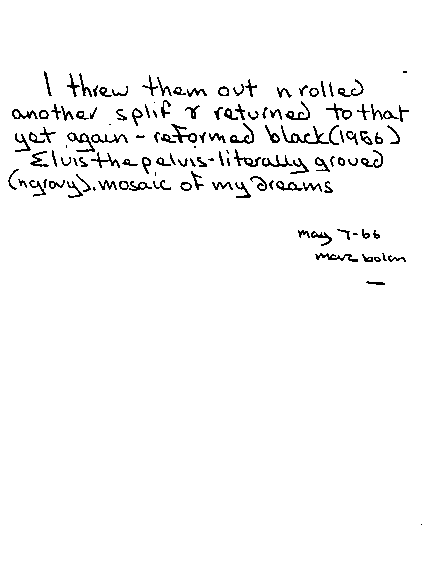 I threw them out n rolled
another splif & returned to that
yet again - reformed black (1956)
Elvis the pelvis - literally groved
(ngravy). mosaic of my dreams
may 7-66
marc bolan